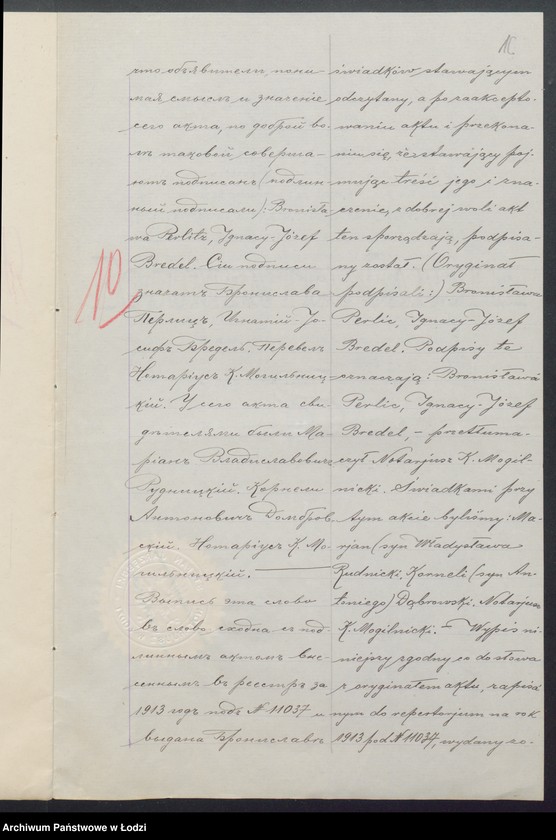 10
что объявители, пони-
мая смыслъ и значеніе
сего акта, по доброй во-
лѣ таковой соверша-
ютъ подписанъ (подлин-
ный подписали): Bronisła-
wa Perlitz, Ignacy-Józef
Bredel. Сіи подписи
значатъ Бронислава
Перлицъ, Игнатій-Іо-
сифъ Бредель. Перевелъ
Нотаріусъ К. Могильниц-
кій. У сего акта сви-
дѣтелями были Ма-
ріанъ Владиславовичъ
Рудницкій, Корнели
Антоновичъ Домбров-
скій. Нотаріусъ К. Мо-
гильницкій.
Выпись эта слово
въ слово сходна съ под-
линнымъ актомъ вне-
сеннымъ въ реестръ за
1913 годъ подъ № 11037 и
выдана Брониславѣ
świadków stawającym
odczytany, a po zaakcepto-
waniu aktu i przekona-
niu się, że stawający poj-
mując treść jego i zna-
czenie, z dobrej woli akt
ten sporządzają, podpisa-
ny został. (Oryginał
podpisali:) Bronisława
Perlic, Ignacy-Józef
Bredel. Podpisy te
oznaczają: Bronisława
Perlic, Ignacy-Józef
Bredel, – przetłuma-
czył Notarjusz K. Mogil-
nicki. Świadkami przy
tym akcie byliśmy: Ma-
rjan (syn Władysława
Rudnicki, Korneli (syn An-
toniego) Dąbrowski. Notarjusz
K. Mogilnicki. – Wypis ni-
niejszy zgodny co do słowa
z oryginałem aktu, zapisa-
nym do repertorjum na rok
1913 pod № 11037, wydany zo-
Archiwum Państwowe w Łodzi